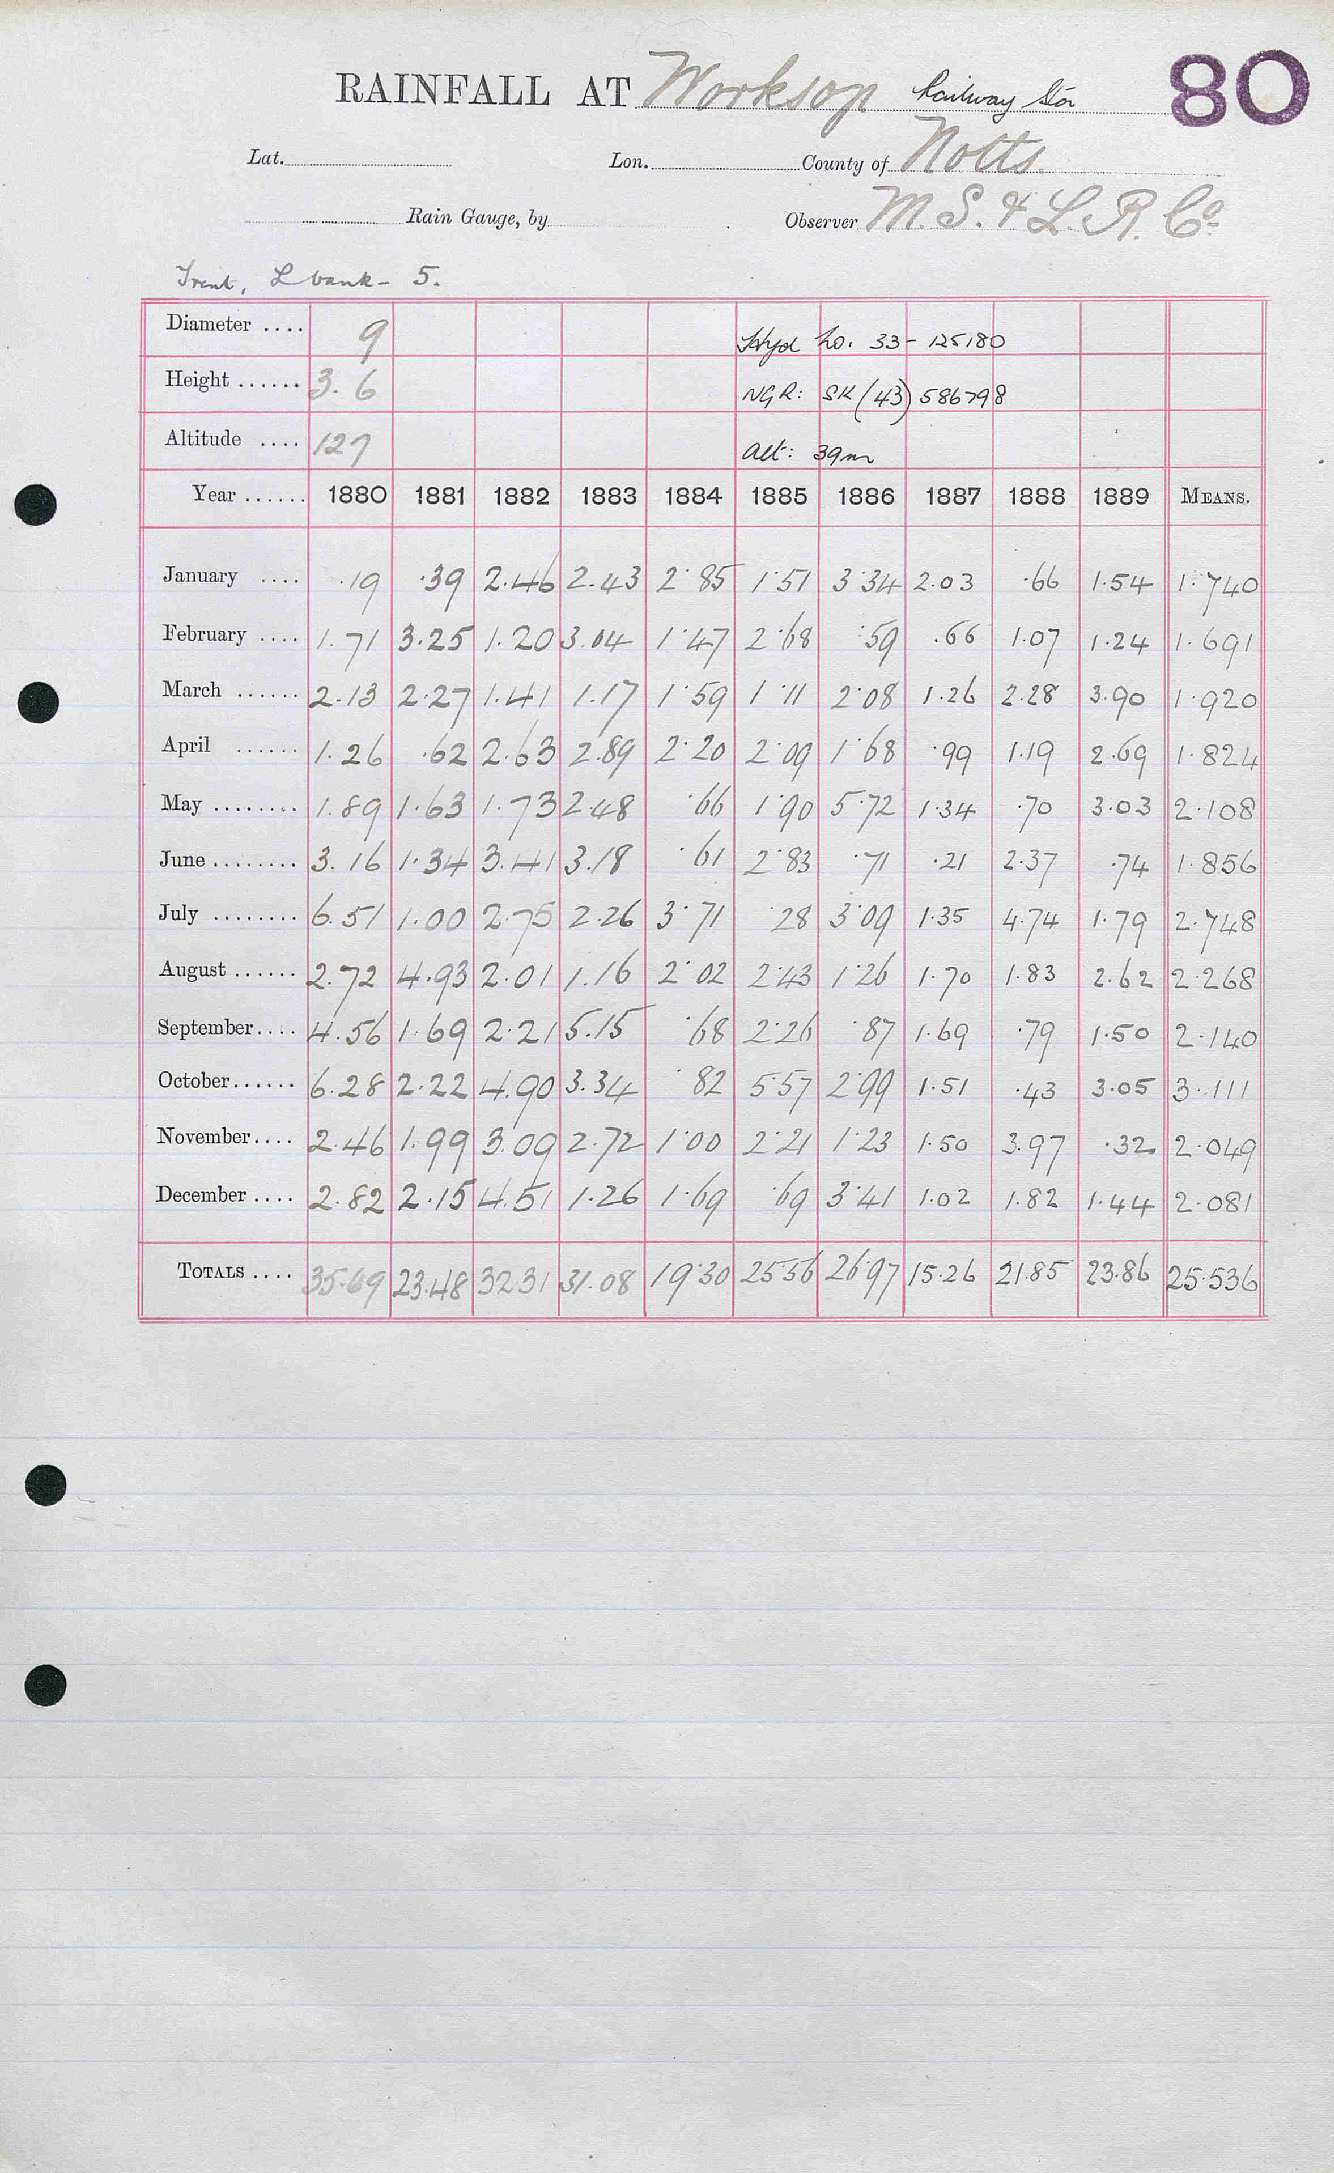 RAINFALL AT Worksop Railway Stn 80
Lat. Lon. County of Notts.
Rain Gauge, by Observer M. S. & L. R. Co.
Trent, L bank - 5.
Diameter .... 9 Hyd No. 33 - 125180
Height ...... 3. 6 NGR: SK (43) 586798
Altitude .... 127 Alt: 39m
Year ...... 1880 1881 1882 1883 1884 1885 1886 1887 1888 1889 MEANS.
January .... .19 .39 2.46 2.43 2.85 1.51 3.34 2.03 .66 1.54 1.740
February .... 1.71 3.25 1.20 3.04 1.47 2.68 .59 .66 1.07 1.24 1.691
March ...... 2.13 2.27 1.41 1.17 1.59 1.11 2.08 1.26 2.28 3.90 1.920
April ...... 1.26 .62 2.63 2.89 2.20 2.09 1.68 .99 1.19 2.69 1.824
May ........ 1.89 1.63 1.73 2.48 .66 1.90 5.72 1.34 .70 3.03 2.108
June ........ 3.16 1.34 3.41 3.18 .61 2.83 .71 .21 2.37 .74 1.856
July ........ 6.51 1.00 2.75 2.26 3.71 .28 3.09 1.35 4.74 1.79 2.748
August ...... 2.72 4.93 2.01 1.16 2.02 2.43 1.26 1.70 1.83 2.62 2.268
September .... 4.56 1.69 2.21 5.15 .68 2.26 .87 1.69 .79 1.50 2.140
October ...... 6.28 2.22 4.90 3.34 .82 5.57 2.99 1.51 .43 3.05 3.111
November .... 2.46 1.99 3.09 2.72 1.00 2.21 1.23 1.50 3.97 .32 2.049
December .... 2.82 2.15 4.51 1.26 1.69 .69 3.41 1.02 1.82 1.44 2.081
TOTALS .... 35.69 23.48 32.31 31.08 19.30 25.56 26.97 15.26 21.85 23.86 25.536